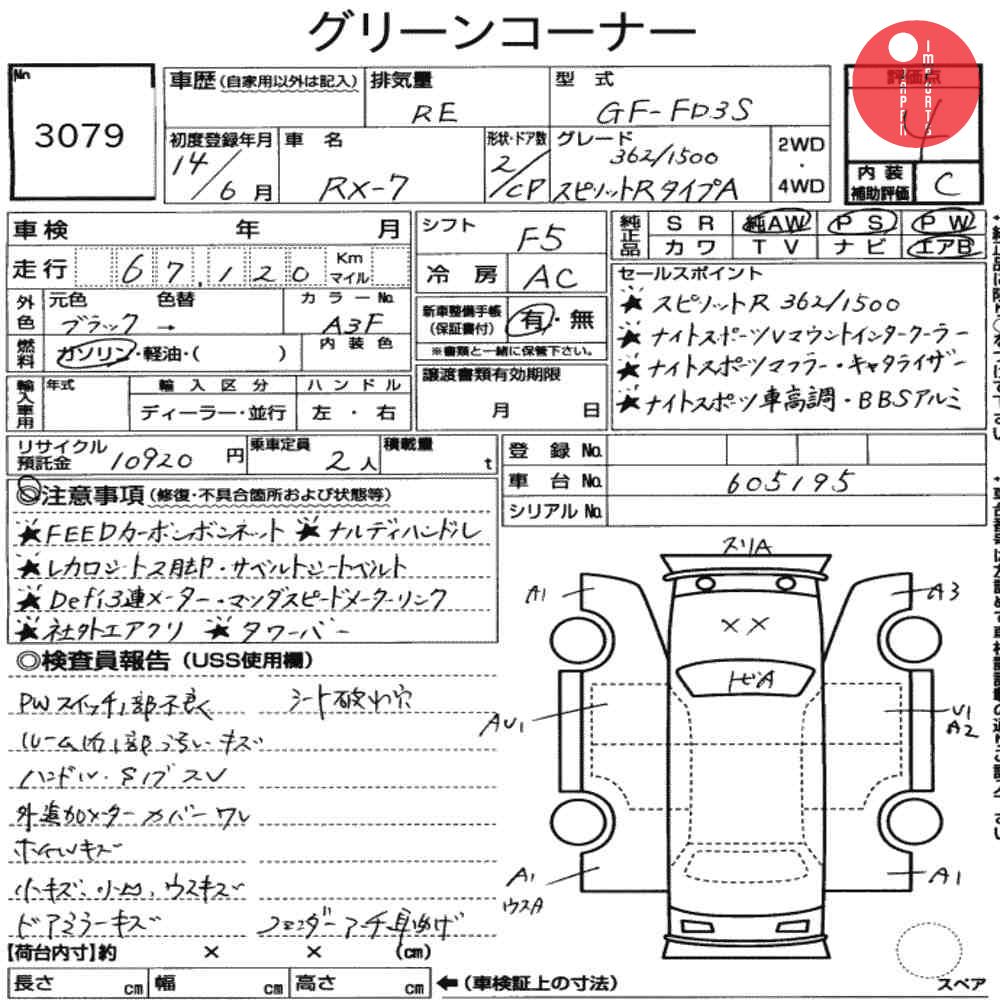 グリーンコーナー
No
3079
車歴(自家用以外は記入)
排気量
RE
型 式
GF-FD3S
評価点
IMPORTS
JAPAN
初度登録年月
14/6月
車 名
RX-7
形状・ドア数
2/CP
グレード
362/1500
スピリットRタイプA
2WD
・
4WD
内装
補助評価
C
車検 年 月
走行 67,120 Km マイル
外色
元色 色替
ブラック →
カラーNo.
A3F
燃料
ガソリン・軽油・( )
内装色
輸入車用
年式
輸入区分
ディーラー・並行
ハンドル
左・右
シフト
F5
冷房
AC
新車整備手帳
(保証書付)
有・無
※書類と一緒に保管下さい。
譲渡書類有効期限
月 日
純正品
SR 純AW PS PW
カワ TV ナビ エアB
セールスポイント
★スピリットR 362/1500
★ナイトスポーツVマウントインタークーラー
★ナイトスポーツマフラー・キャタライザー
★ナイトスポーツ車高調・BBSアルミ
リサイクル
預託金
10920円
乗車定員
2人
積載量
t
登録No.
車台No.
605195
シリアルNo.
◎注意事項(修復・不具合箇所および状態等)
★FEEDカーボンボンネット ★ナルディハンドル
★レカロシート2脚・サベルトシートベルト
★Defi3連メーター・マツダスピードメータリンク
★社外エアクリ ★タワーバー
◎検査員報告(USS使用欄)
PWスイッチ1部不良 シート破れ穴
ルーム内1部汚レ・キズ
ハンドル・Sノブスレ
外追加メーターカバーワレ
ホイールキズ
小キズ、小凹、ウスキズ
ドアミラーキズ フェンダーアーチ耳曲げ
スリA
A1
A3
XX
トビA
AU1
U1
A2
A1
ウスA
A1
スペア
【荷台内寸】約 × × (cm)
長さ cm 幅 cm 高さ cm
←(車検証上の寸法)